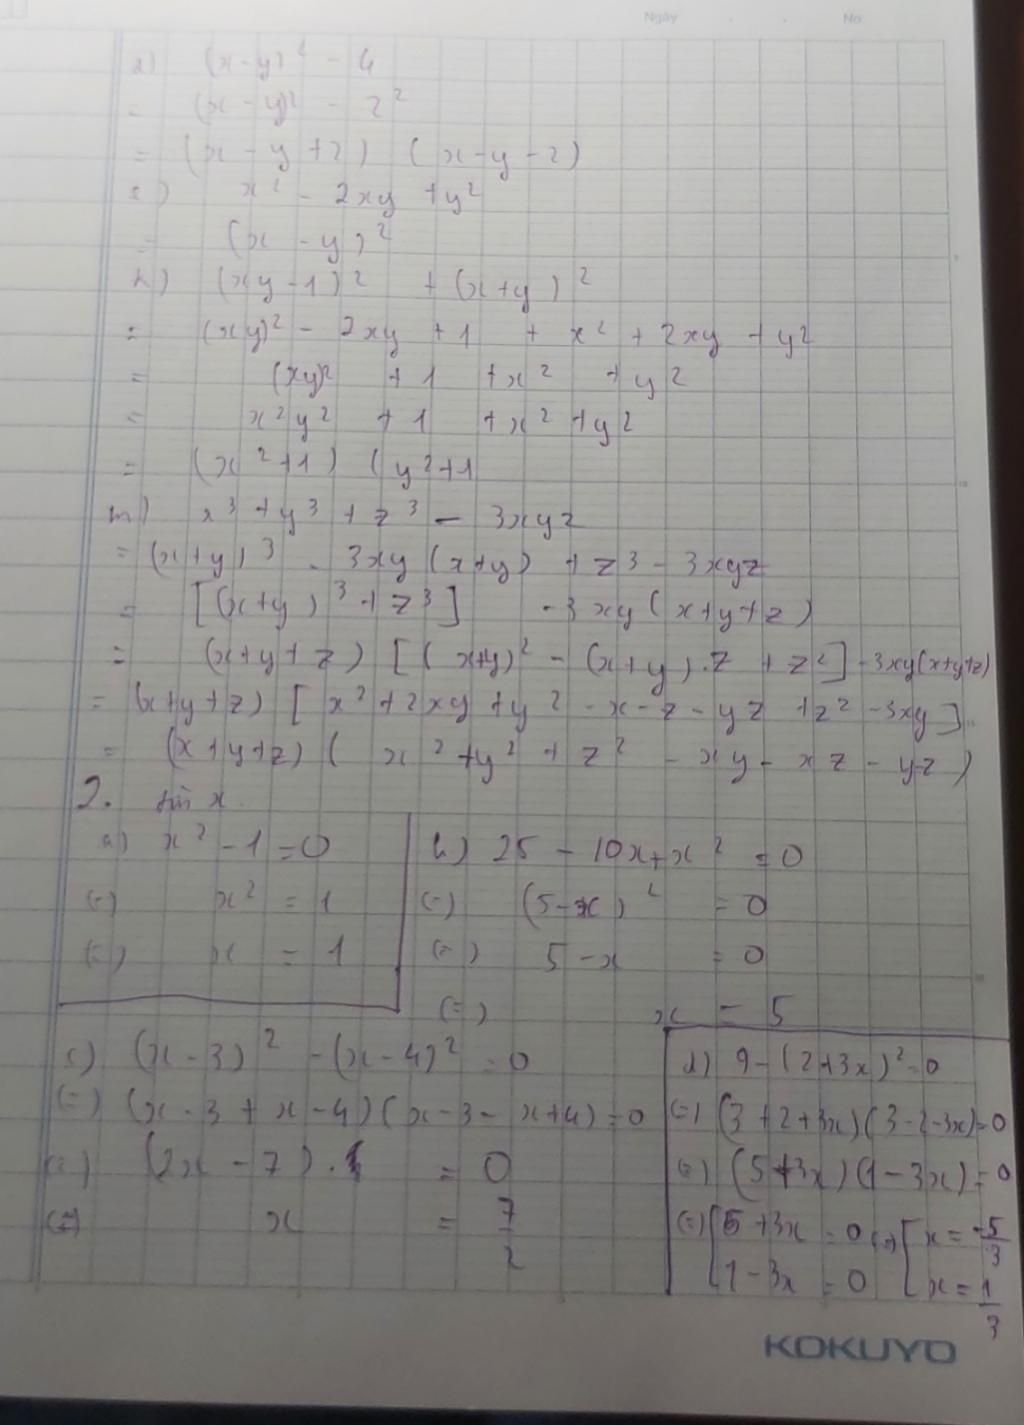 Ngày . . No.
d) (x-y)² - 4
= (x-y)² - 2²
= (x - y + 2) (x - y - 2)
x² - 2xy + y²
= (x - y)²
h) (xy - 1)² + (x+y)²
= (xy)² - 2xy + 1 + x² + 2xy + y²
= (xy)² + 1 + x² + y²
= x²y² + 1 + x² + y²
= (x² + 1) (y² + 1
m) x³ + y³ + z³ - 3xyz
= (x+y)³ - 3xy(x+y) + z³ - 3xyz
= [(x+y)³ + z³] - 3xy(x+y+z)
= (x+y+z) [(x+y)² - (x+y).z + z²] - 3xy(x+y+z)
= (x+y+z) [x² + 2xy + y² - x - z - yz + z² - 3xy]
= (x+y+z) (x² + y² + z² - xy - xz - yz)
2. tìm x
a) x² - 1 = 0
(=) x² = 1
(=) x = 1
b) 25 - 10x + x² = 0
(=) (5-x)² = 0
(=) 5 - x = 0
(=) x = 5
c) (x-3)² - (x-4)² = 0
(=) (x - 3 + x - 4)(x - 3 - x + 4) = 0
(=) (2x - 7) . 1 = 0
(=) x = 7/2
d) 9 - (2+3x)² = 0
(=) (3 + 2 + 3x)(3 - 2 - 3x) = 0
(=) (5+3x)(1-3x) = 0
(=) [5 + 3x = 0 (=) [x = -5/3
[1 - 3x = 0 [x = 1/3
KOKUYO